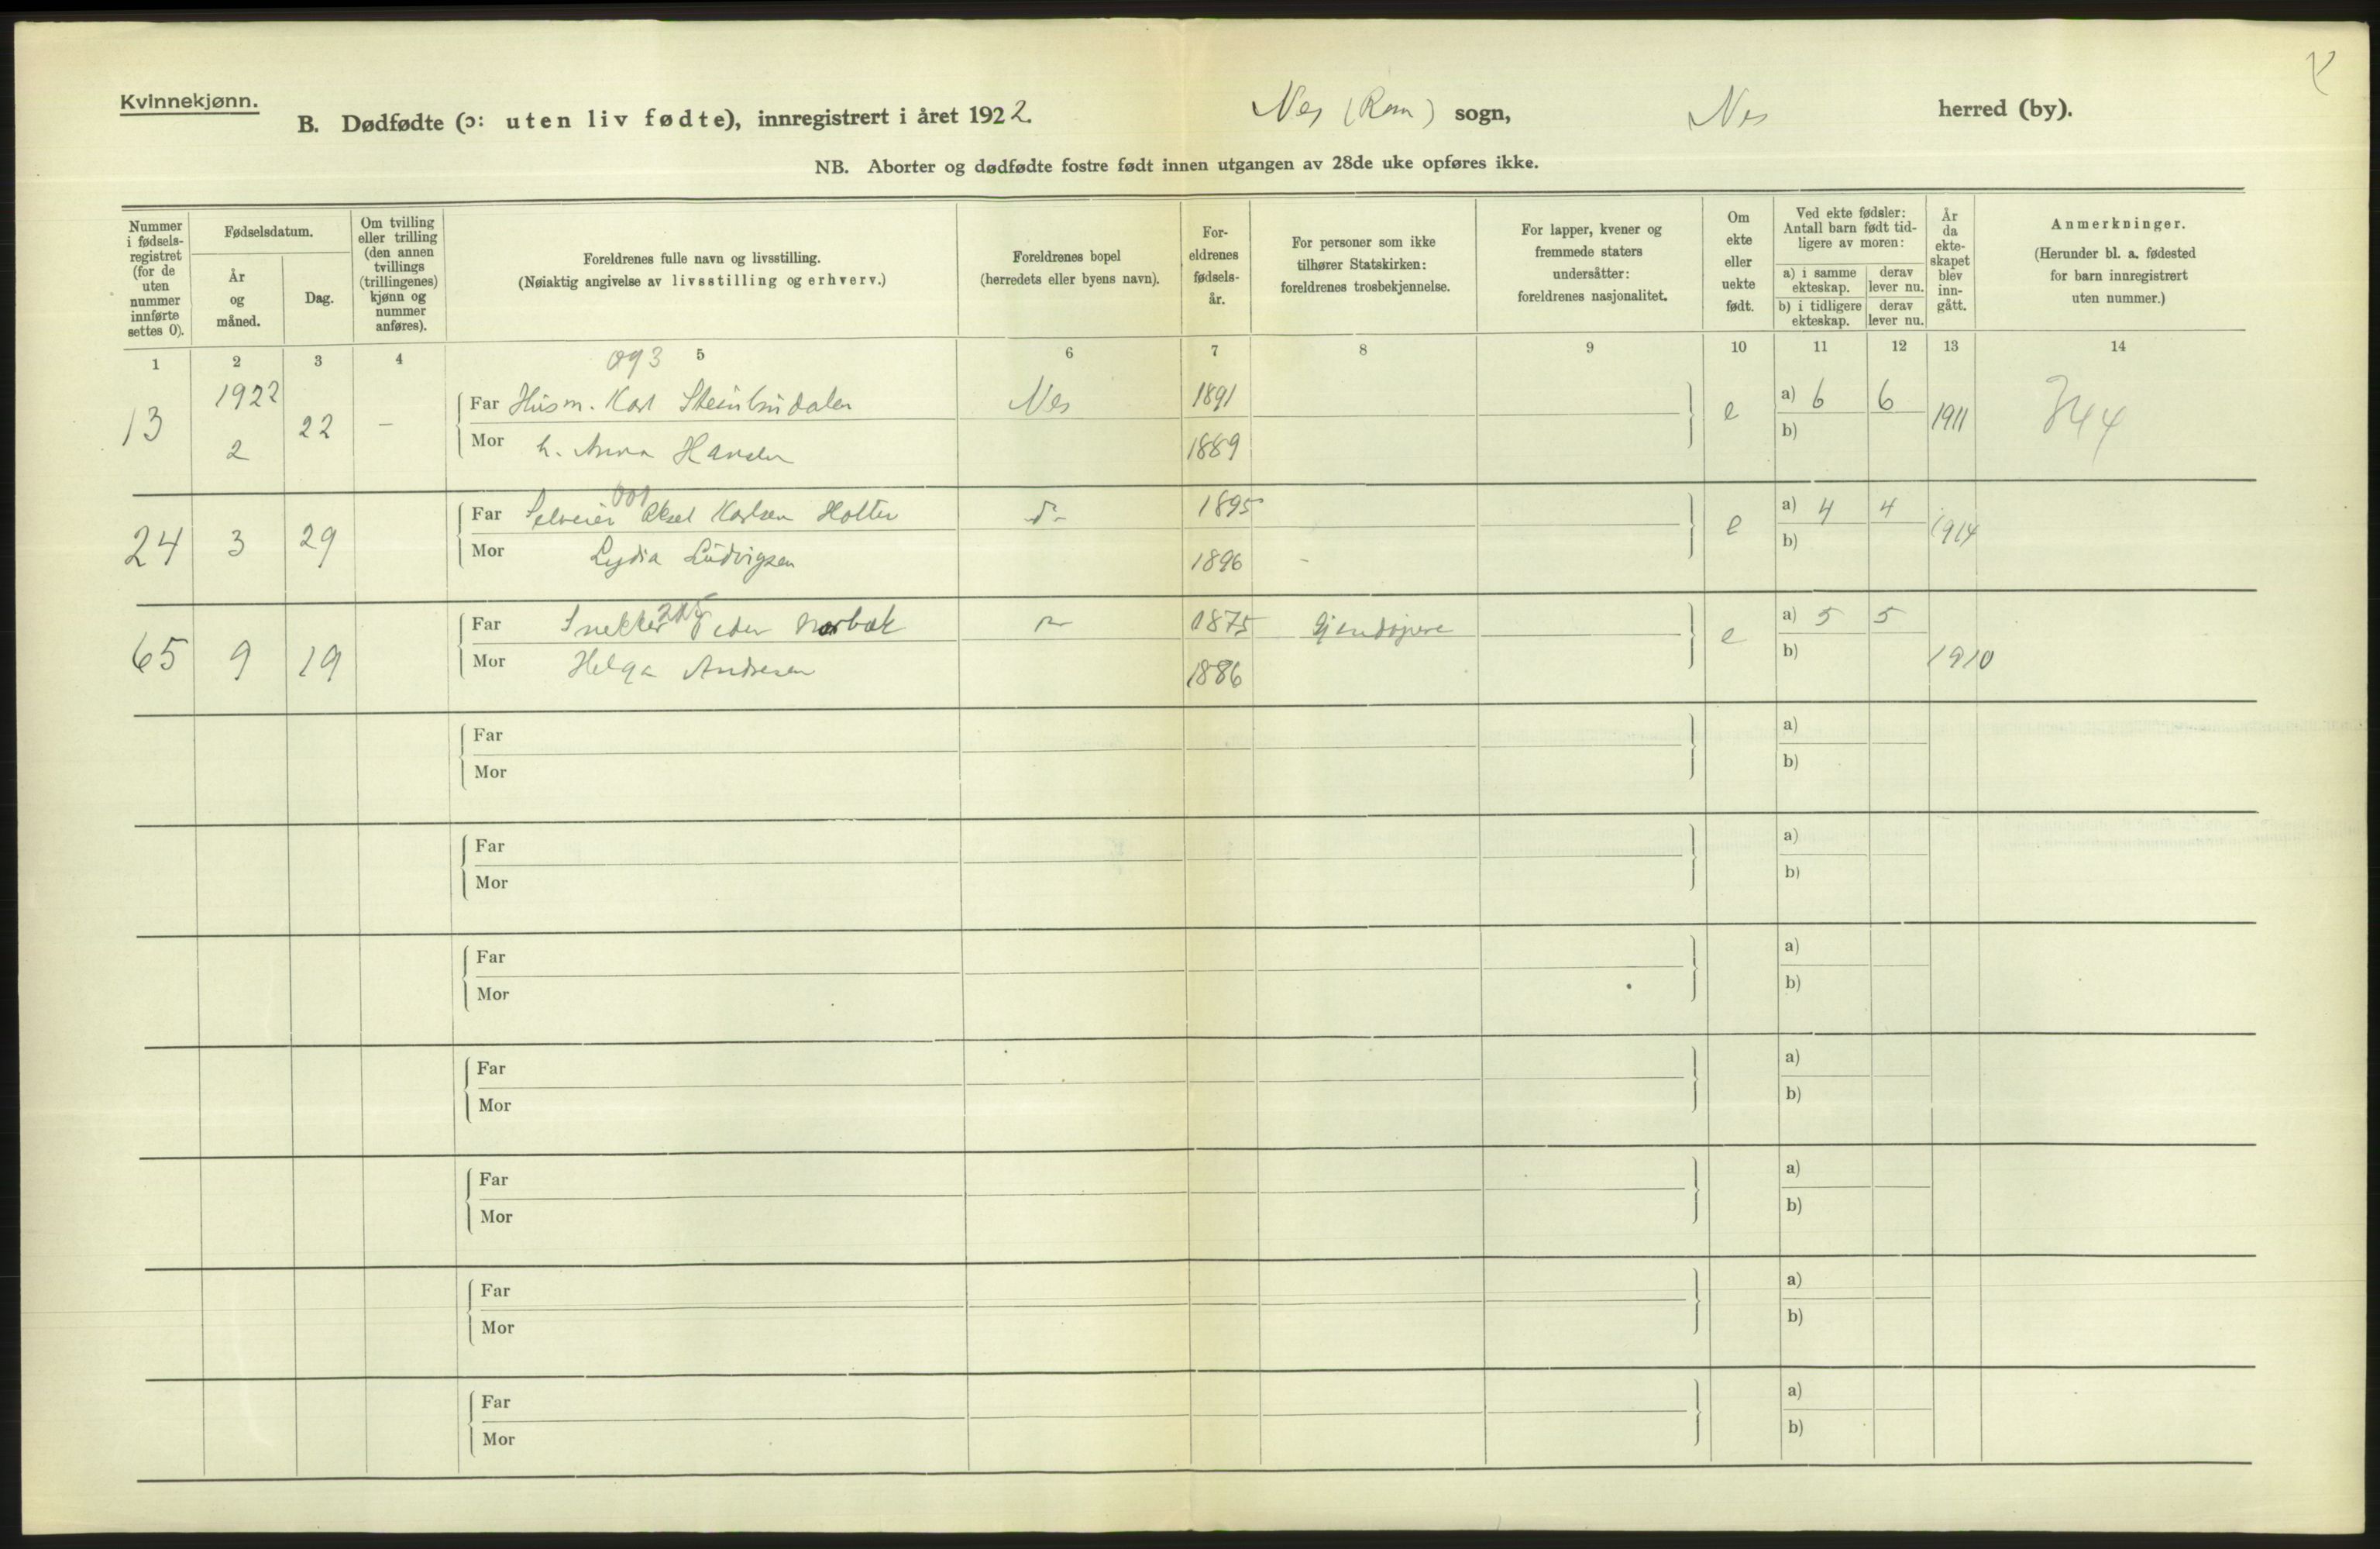 Kvinnekjønn.
B. Dødfødte (ɔ: uten liv fødte), innregistrert i året 1922. Nes (Rom) sogn, Nes herred (by).
NB. Aborter og dødfødte fostre født innen utgangen av 28de uke opføres ikke.
Nummer i fødsels-registret (for de uten nummer innførte settes 0).
Fødselsdatum.
År og måned.
Dag.
Om tvilling eller trilling (den annen tvillings (trillingenes) kjønn og nummer anføres).
Foreldrenes fulle navn og livsstilling.
(Nøiaktig angivelse av livsstilling og erhverv.)
Foreldrenes bopel
(herredets eller byens navn).
For-eldrenes fødsels-år.
For personer som ikke tilhører Statskirken: foreldrenes trosbekjennelse.
For lapper, kvener og fremmede staters undersåtter: foreldrenes nasjonalitet.
Om ekte eller uekte født.
Ved ekte fødsler: Antall barn født tid-ligere av moren:
a) i samme ekteskap.
derav lever nu.
b) i tidligere ekteskap.
derav lever nu.
År da ekte-skapet blev inn-gått.
Anmerkninger.
(Herunder bl. a. fødested for barn innregistrert uten nummer.)
1 2 3 4 5 6 7 8 9 10 11 12 13 14
093
13 1922 2 22 – Far Husm. Karl Nes 1891 e a) 6 6 1911 344
Mor h. Anna Hansen 1889 b)
001
24 3 29 Far Selveier Aksel Karlsen Holter do 1895 e a) 4 4 1914
Mor Lydia Ludvigsen 1896 – b)
215
65 9 19 Far Snekker Peder Norbak 1875 Gjendøpere e a) 5 5 1910
Mor Helga Andresen 1886 b)
Far a)
Mor b)
Far a)
Mor b)
Far a)
Mor b)
Far a)
Mor b)
Far a)
Mor b)
Far a)
Mor b)
Far a)
Mor b)